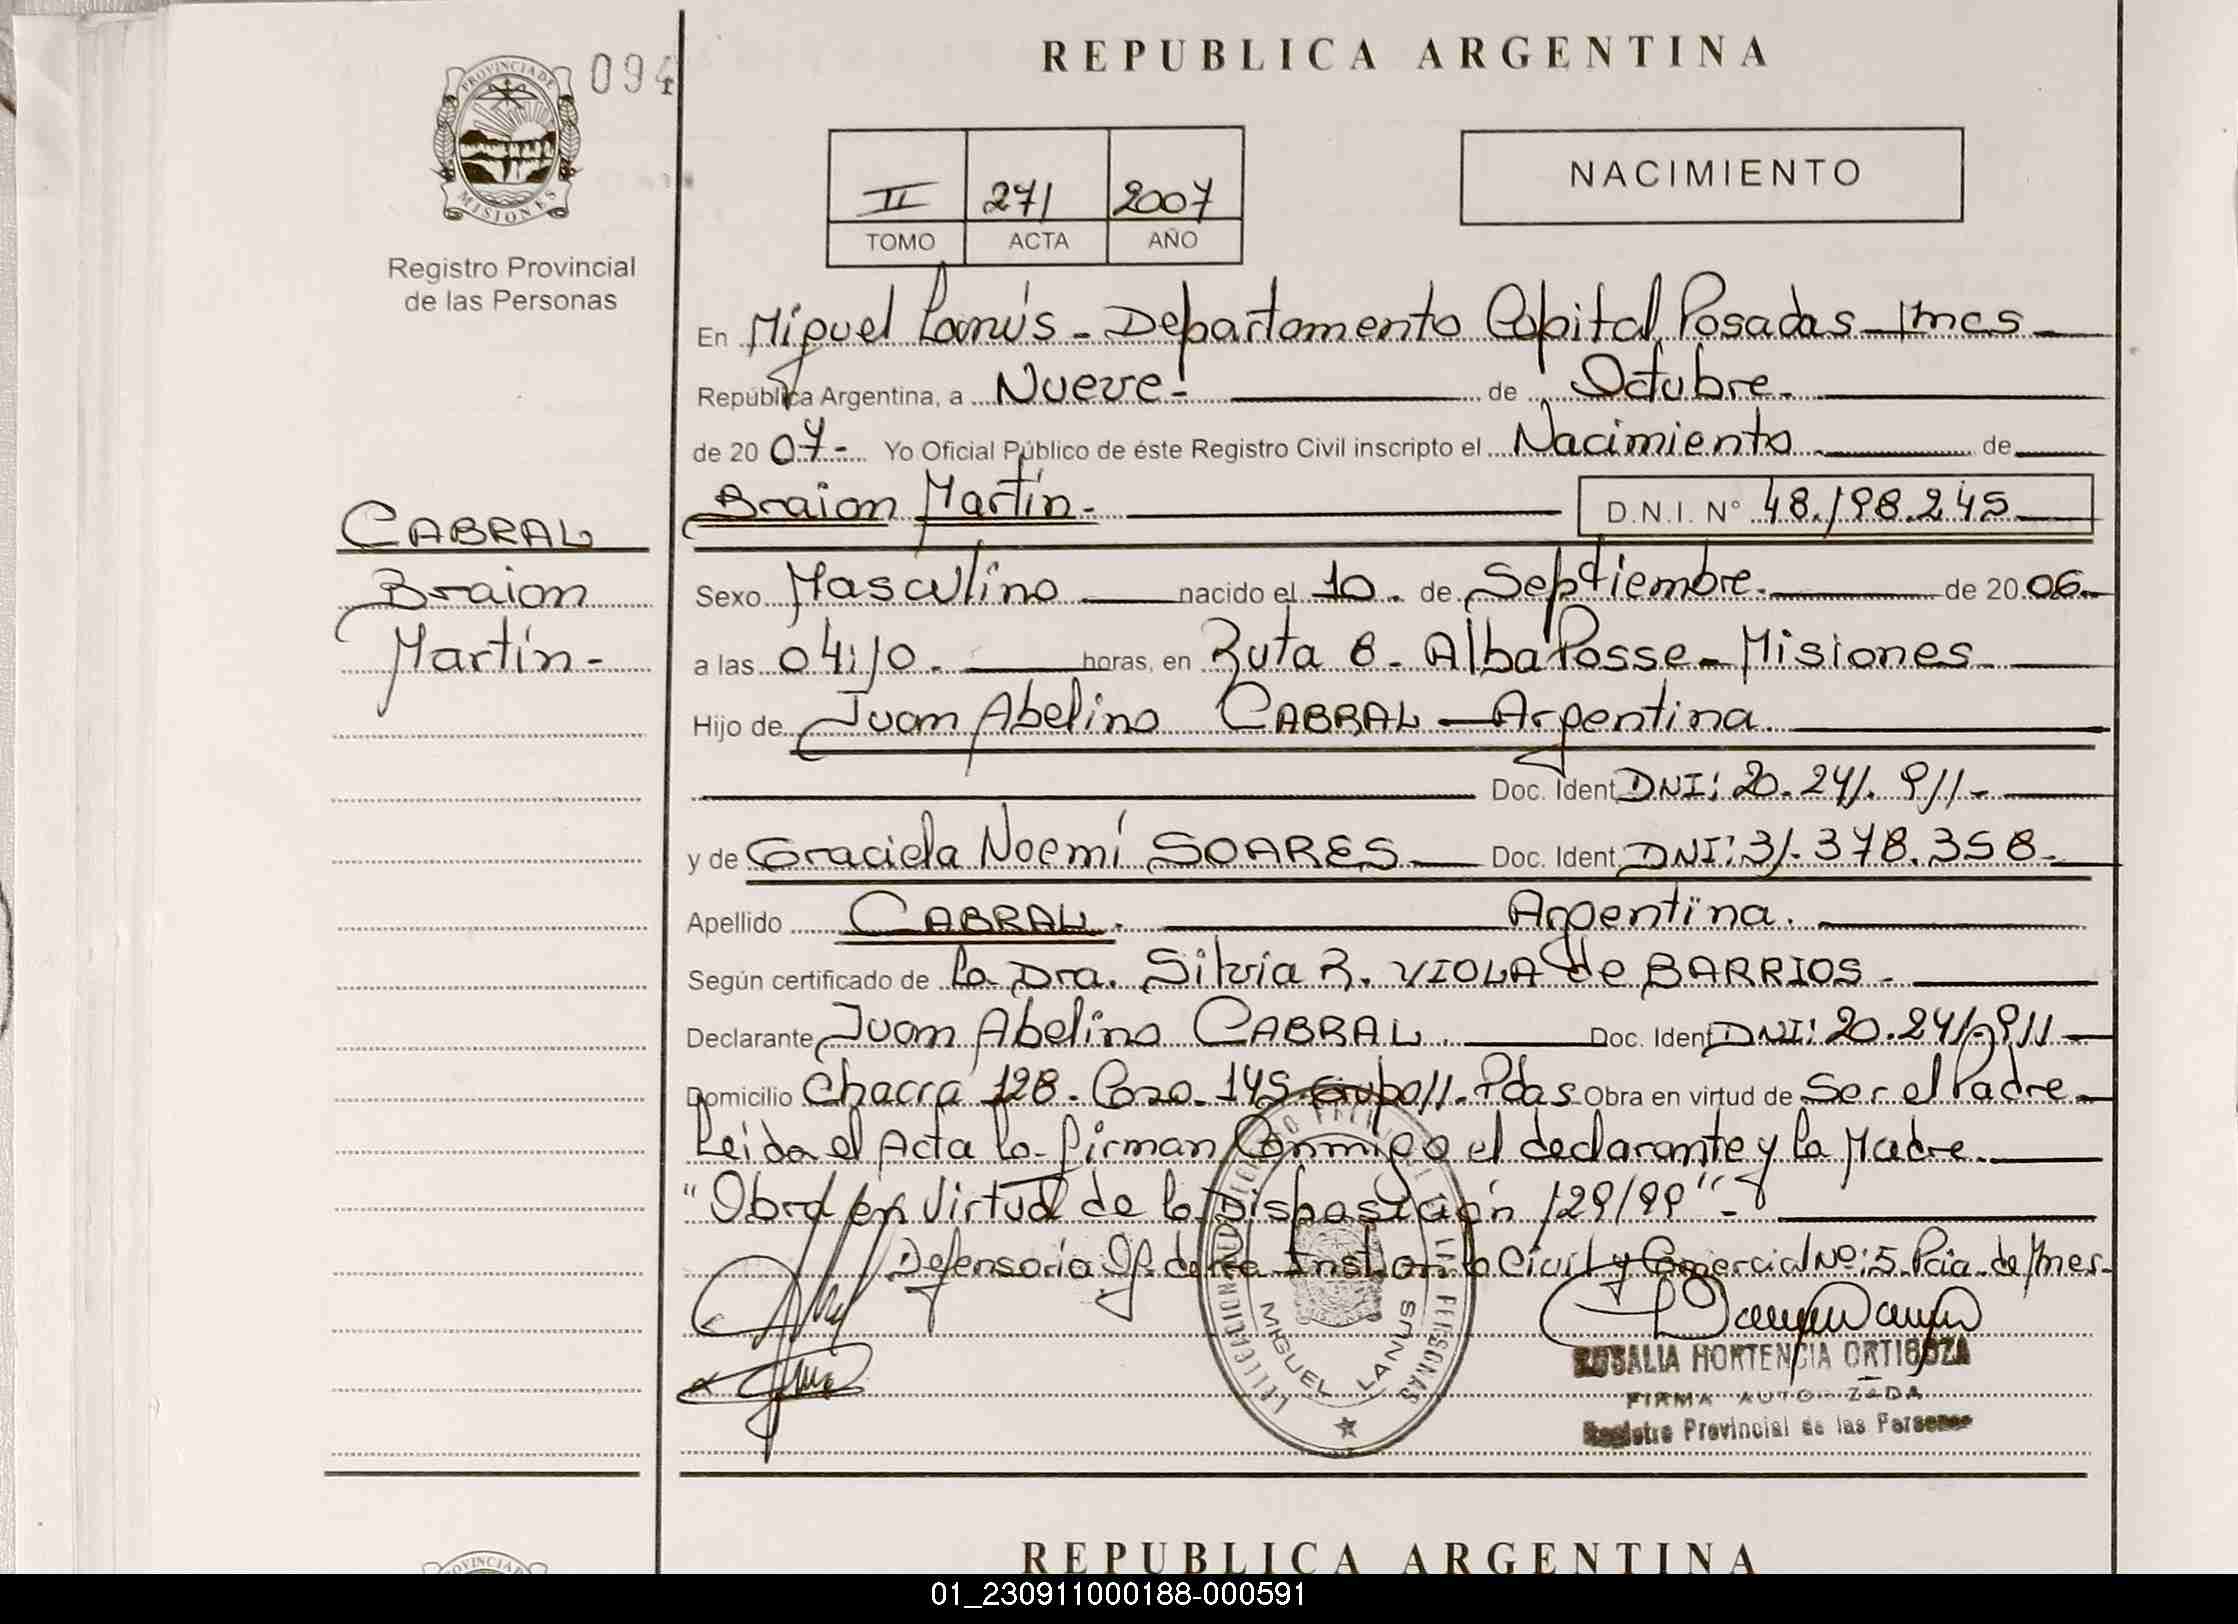 REPUBLICA ARGENTINA
094
PROVINCIA DE
MISIONES
Registro Provincial
de las Personas
II 271 2007
TOMO ACTA AÑO
NACIMIENTO
En Miguel Lanús - Departamento Capital Posadas - Mnes
República Argentina, a Nueve.- de Octubre.
de 20 07.- Yo Oficial Público de éste Registro Civil inscripto el Nacimiento de
Braian Martín.- D.N.I. N° 48.198.245
CABRAL
Braian
Martín-
Sexo Masculino nacido el 10. de Septiembre. de 20 06.
a las 04:10. horas, en Ruta 8. Alba Posse - Misiones
Hijo de Juan Abelino CABRAL - Argentina.
Doc. Ident DNI: 20.241.911.-
y de Graciela Noemí SOARES Doc. Ident. DNI: 31.378.358.
Apellido CABRAL. Argentina.
Según certificado de la Dra. Silvia R. VIOLA de BARRIOS.
Declarante Juan Abelino CABRAL. Doc. Ident DNI: 20.241.911
Domicilio Chacra 128. Casa. 145. Grupo 11. Pdas Obra en virtud de Ser el Padre
Leida el Acta la firman Conmigo el declarante y la Madre
"Obra en Virtud de la Disposición 129/99".-
Defensoría Of. de 1ra Instancia Civil y Comercial Nº: 5. Pcia. de Mnes.
MIGUEL LANUS
ROSALIA HORTENCIA ORTIGOZA
FIRMA AUTORIZADA
Registro Provincial de las Personas
REPUBLICA ARGENTINA
01_230911000188-000591